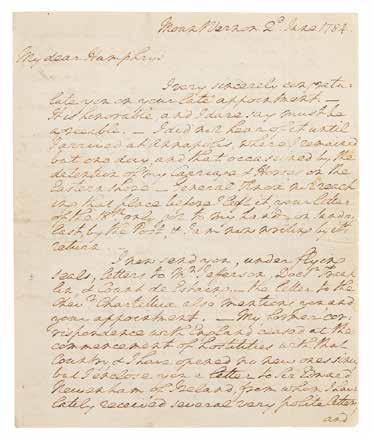 Mount Vernon 2d June 1784.
My dear Humphrys
I very sincerely congratu-
late you on your late appointment. —
It is honorable, and I dare say must be
agreeable. — I did not hear of it until
I arrived at Annapolis, where I remained
but one day, and that occasioned by the
detention of my Carriage & Horses on the
Eastern shore — General Knox not reach-
ing that place before I left it, your letter
of the 18th only got to my hands on Sunday
last, by the Post, & I am now writing by its
return.
I now send you, under flying
seals, letters to Mr. Jefferson, Doctr. Frank-
lin, & Count de Estaing — the letter to the
Chevr. Chartellux also mentions you and
your appointment. — My former cor-
rispondence with England ceased at the
commencement of hostilities with that
Country & I have opened no new one since,
but I inclose you a letter to Sir Edward
Newenham of Ireland, from whom I have
lately received several very polite letters,
and